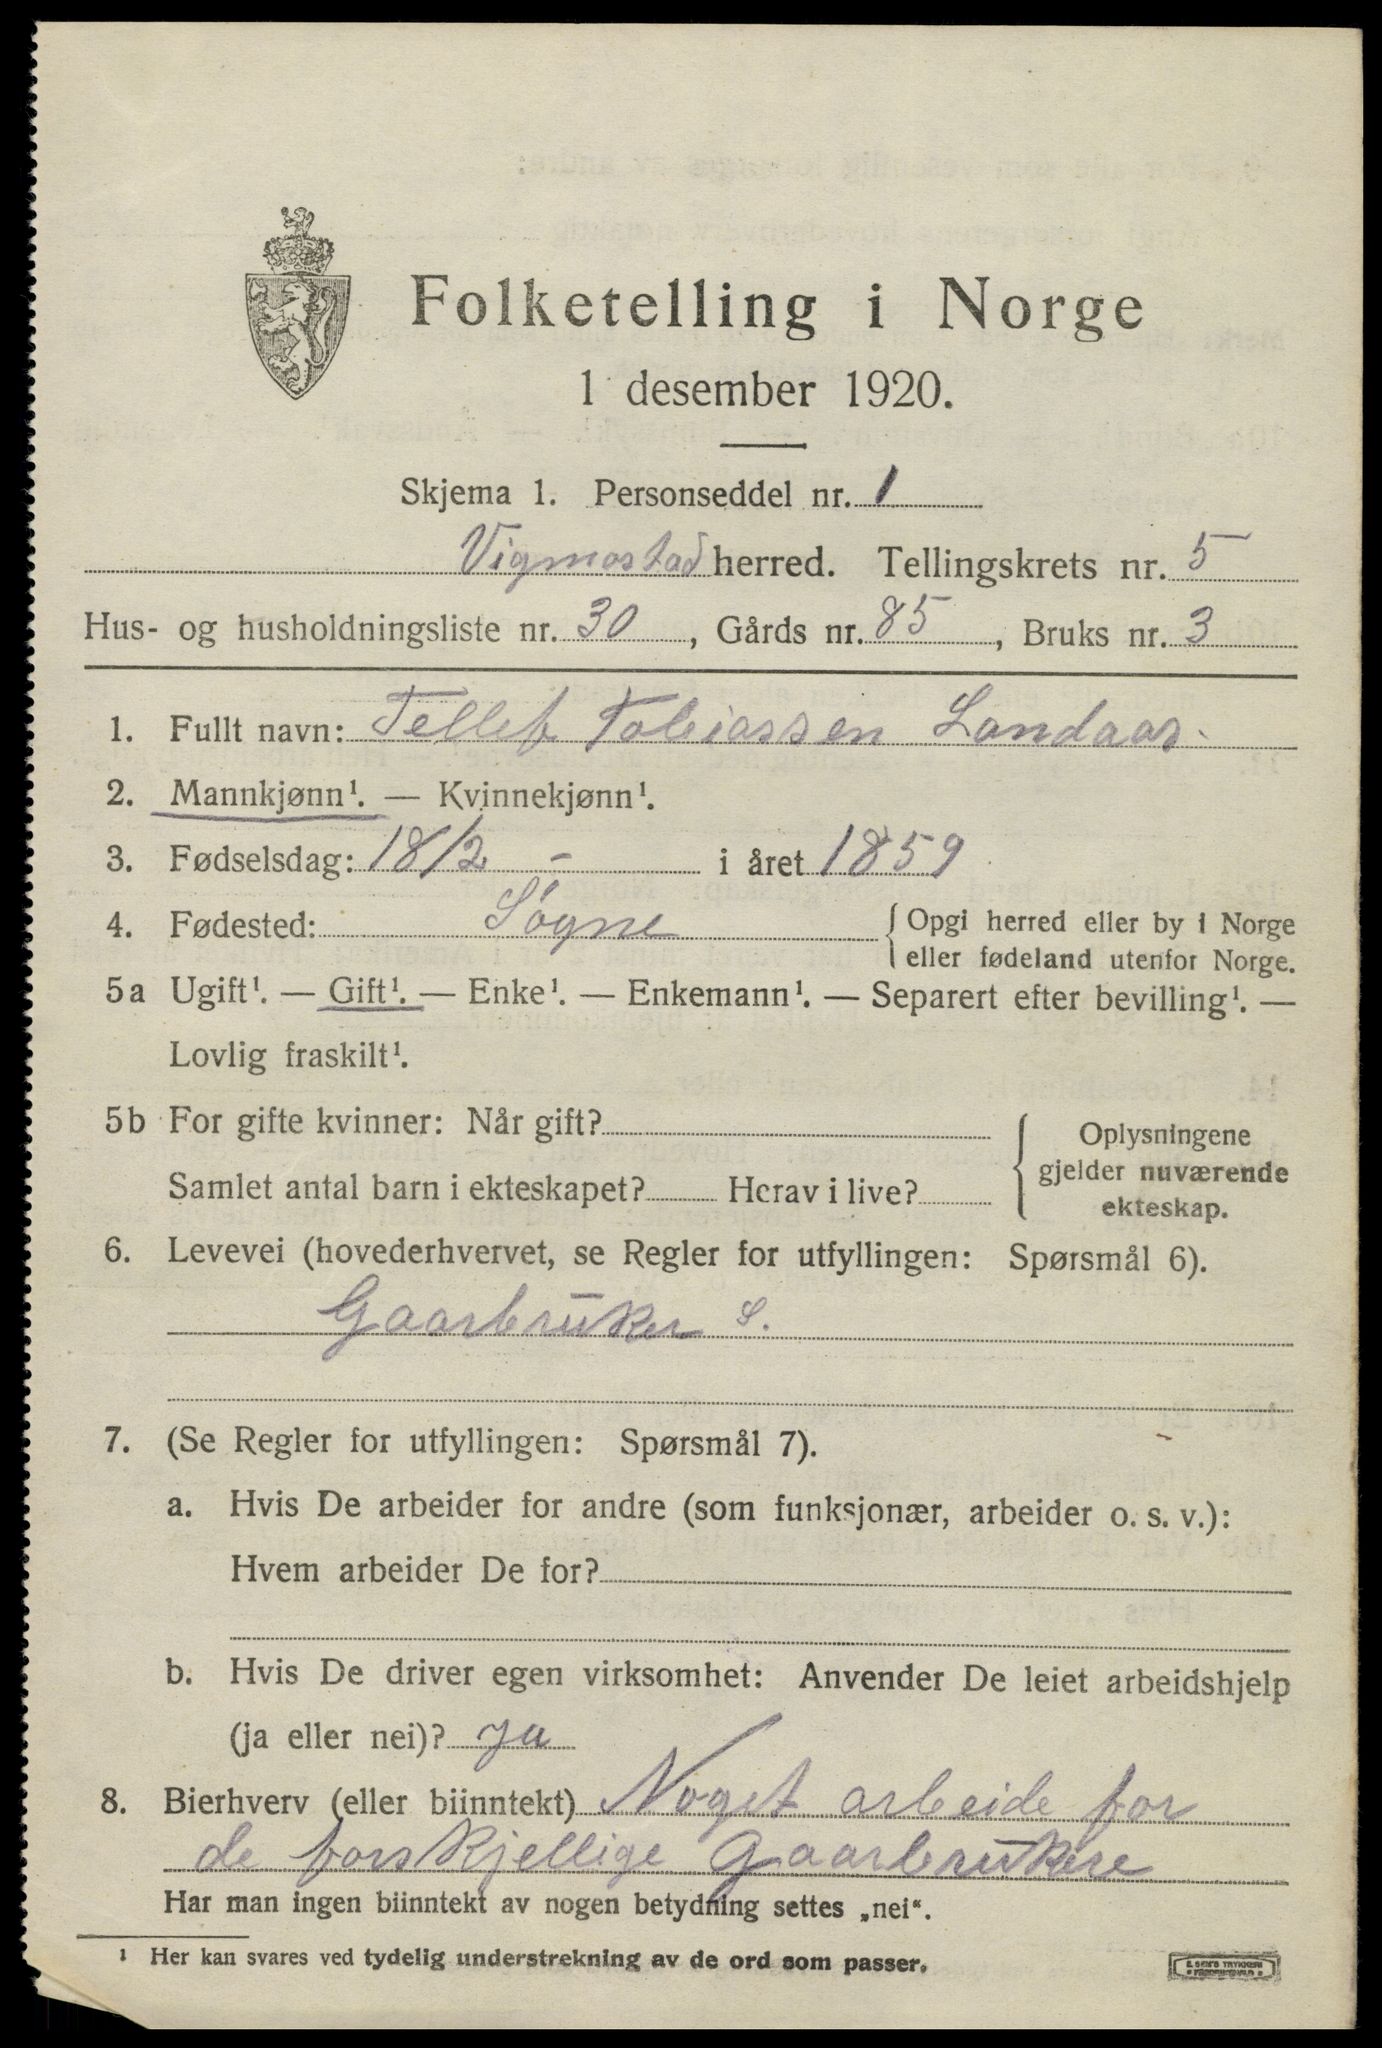 Folketelling i Norge
1 desember 1920.
Skjema 1. Personseddel nr. 1
Vigmostad herred. Tellingskrets nr. 5
Hus- og husholdningsliste nr. 30, Gårds nr. 85, Bruks nr. 3
1. Fullt navn: Tellef Tobiassen Landaas.
2. Mannkjønn¹. — Kvinnekjønn¹.
3. Fødselsdag: 18/2 - i året 1859
4. Fødested: Søgne { Opgi herred eller by i Norge
eller fødeland utenfor Norge.
5a Ugift¹. — Gift¹. — Enke¹. — Enkemann¹. — Separert efter bevilling¹. —
Lovlig fraskilt¹.
5b For gifte kvinner: Når gift?
Samlet antal barn i ekteskapet? Herav i live?
Oplysningene
gjelder nuværende
ekteskap.
6. Levevei (hovederhvervet, se Regler for utfyllingen: Spørsmål 6).
Gaarbruker S.
7. (Se Regler for utfyllingen: Spørsmål 7).
a. Hvis De arbeider for andre (som funksjonær, arbeider o. s. v.):
Hvem arbeider De for?
b. Hvis De driver egen virksomhet: Anvender De leiet arbeidshjelp
(ja eller nei)? ja
8. Bierhverv (eller biinntekt) Noget arbeide for
de forskjellige Gaarbrukere
Har man ingen biinntekt av nogen betydning settes „nei".
¹ Her kan svares ved tydelig understrekning av de ord som passer.